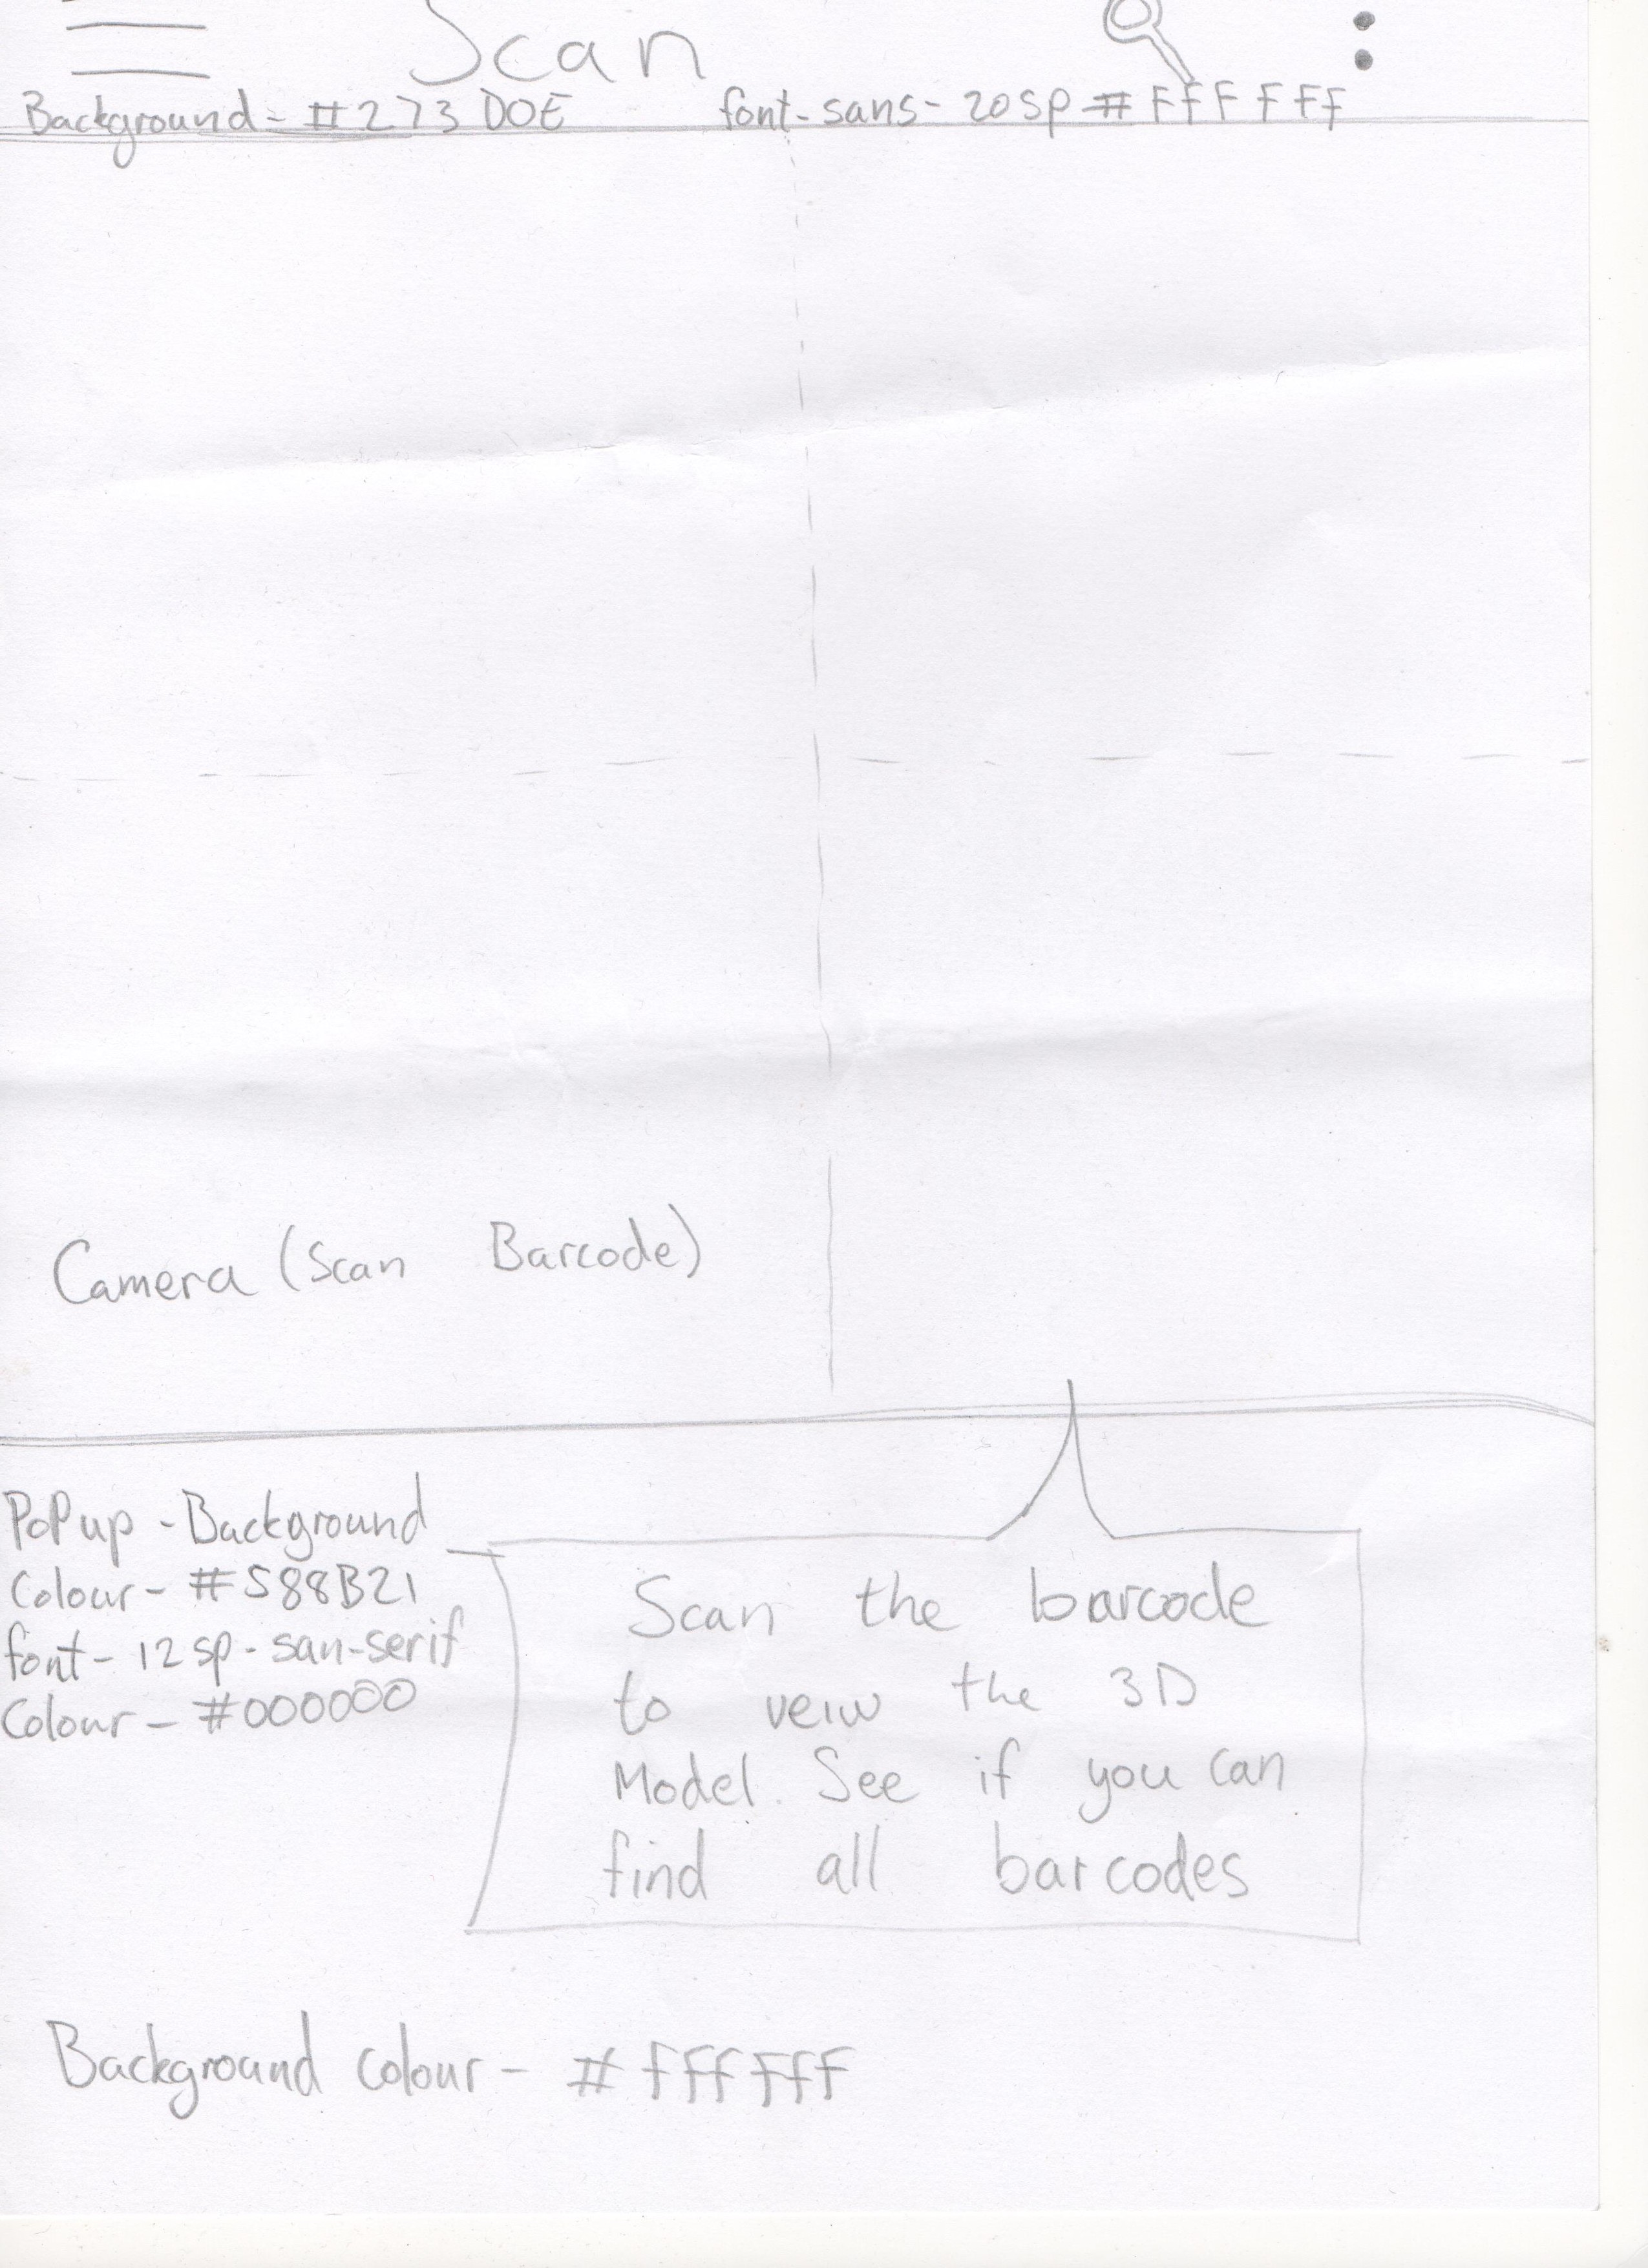 Scan
Background - #273D0E
font-sans-20sp-#FFFFFF
Camera (Scan Barcode)
PoPup - Background
Colour - #588B21
font - 12sp - san-serif
Colour - #000000
Scan the barcode
to veiw the 3D
Model. See if you can
find all barcodes
Background colour - #FFFFFF